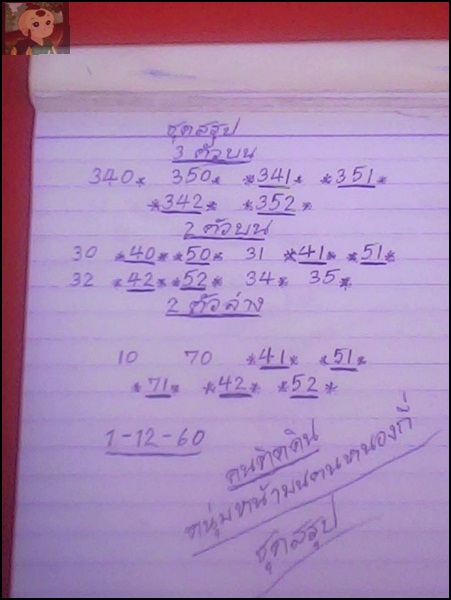 ชุดสรุป
3 ตัวบน
340* 350* *341* *351*
*342* *352*
2 ตัวบน
30 *40* *50* 31 *41* *51*
32 *42* *52* 34* 35*
2 ตัวล่าง
10 70 *41* *51*
*71* *42* *52*
1-12-60
คนติดดิน
หนุ่มหน้ามนคนหนองกี่
ชุดสรุป